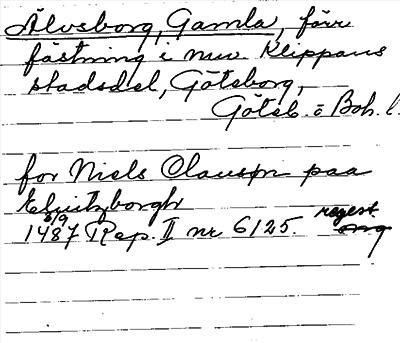 Älvsborg, Gamla, förr
fästning i nuv. Klippans
stadsdel, Göteborg,
Göteb. o Boh. l.
for Niels Clausøn paa
Elsuitzborgh
6/9
1487 Rep. II nr 6125. regest
orig